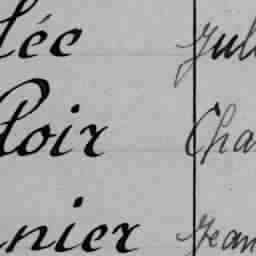 lée Jul
loir Cha
nier Jean